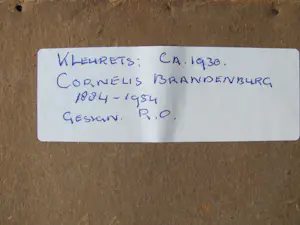 KLEURETS: CA. 1930.
CORNELIS BRANDENBURG
1884-1954
GESIGN. R.O.